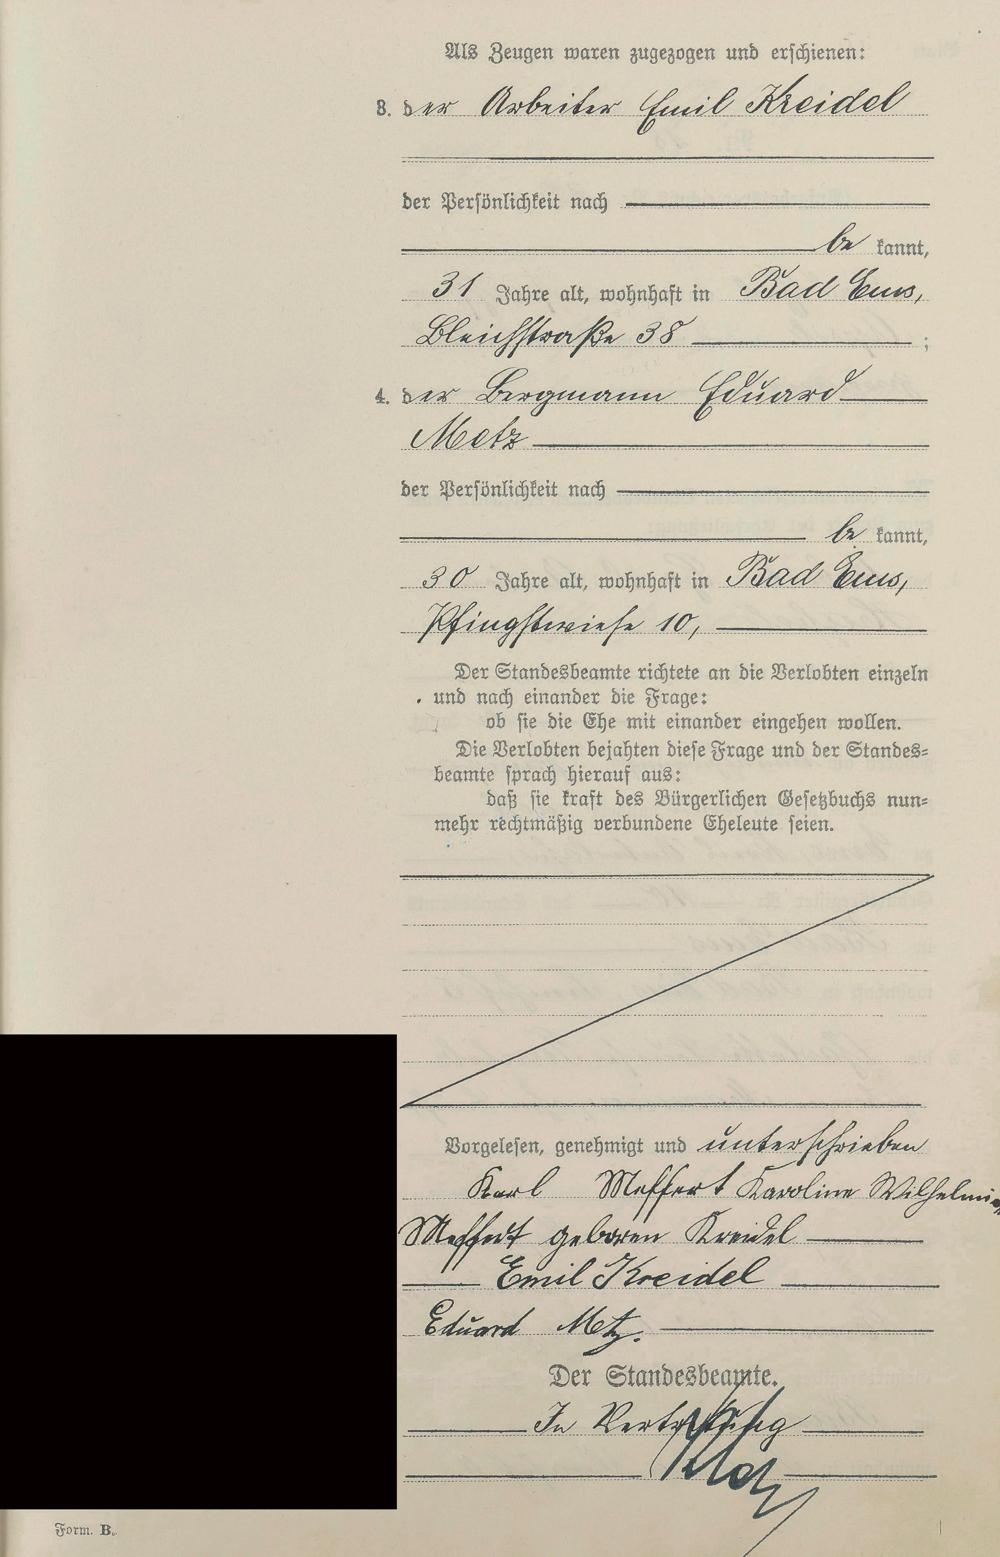 Als Zeugen waren zugezogen und erschienen:
3. der Arbeiter Emil Kreidel
der Persönlichkeit nach
be kannt,
31 Jahre alt, wohnhaft in Bad Ems,
Bleichstraße 38 ;
4. der Bergmann Eduard
Metz
der Persönlichkeit nach
be kannt,
30 Jahre alt, wohnhaft in Bad Ems,
Pfingstwiese 10,
Der Standesbeamte richtete an die Verlobten einzeln
und nach einander die Frage:
ob sie die Ehe mit einander eingehen wollen.
Die Verlobten bejahten diese Frage und der Standes=
beamte sprach hierauf aus:
daß sie kraft des Bürgerlichen Gesetzbuchs nun=
mehr rechtmäßig verbundene Eheleute seien.
Vorgelesen, genehmigt und unterschrieben
Karl Meffert Karoline
Meffert geboren Kreidel
Emil Kreidel
Eduard Metz.
Der Standesbeamte.
In Vertretung
Form. B.